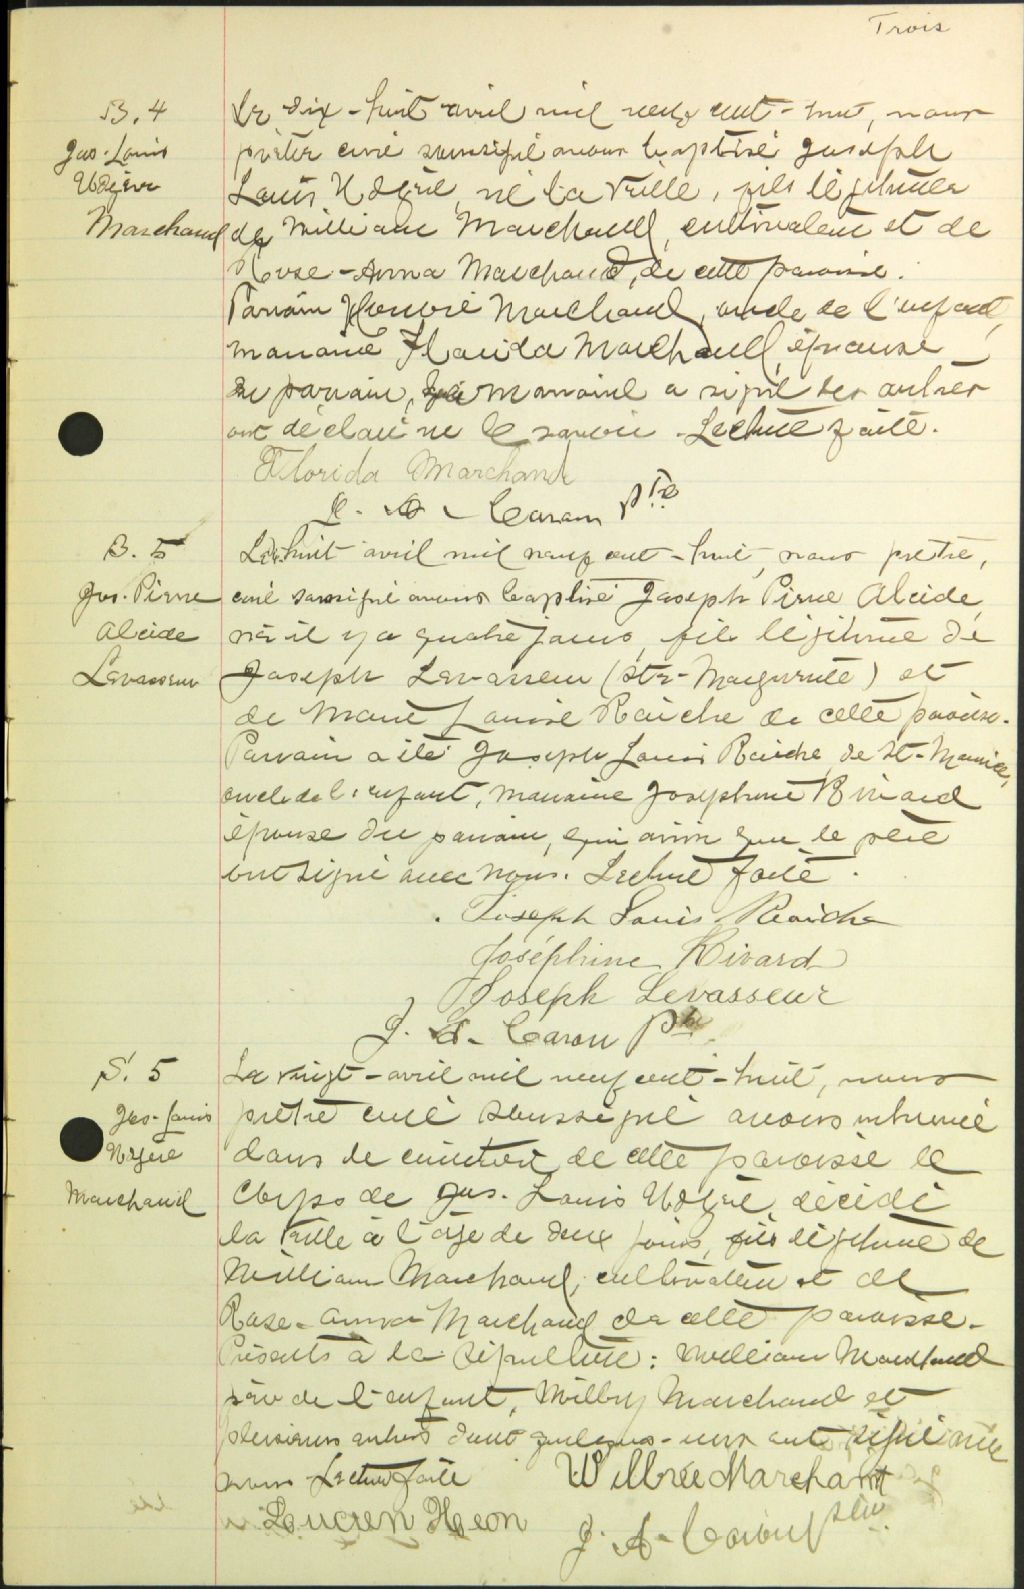 Trois
B. 4
Jos. Louis
Udgère
Marchand
Le dix-huit avril mil neuf cent-huit, nous
prêtre curé soussigné avons baptisé Joseph
Louis Udgère, né la veille, fils légitime
de William Marchand, cultivateur et de
Rose-Anna Marchand, de cette paroisse.
Parrain Honoré Marchand, oncle de l'enfant,
marraine Florida Marchand, épouse
du parrain, la marraine a signé les autres
ont déclaré ne le savoir. Lecture faite.
Florida Marchand
J. A. Caron Ptre
B. 5
Jos. Pierre
Alcide
Levasseur
Le huit avril mil neuf cent-huit, nous prêtre,
curé soussigné avons baptisé Joseph Pierre Alcide,
né il y a quatre jours, fils légitime de
Joseph Levasseur (Ste-Marguerite) et
de Marie Louise Raiche de cette paroisse.
Parrain a été Joseph Louis Raiche de St-Maurice,
oncle de l'enfant, marraine Josephine Rivard
épouse du parrain, qui ainsi que le père
ont signé avec nous. Lecture faite.
Joseph Louis Raiche
Joséphine Rivard
Joseph Levasseur
J. A. Caron Ptre.
S. 5
Jos-Louis
Udgère
Marchand
Le vingt-avril mil neuf cent-huit, nous
prêtre curé soussigné avons inhumé
dans le cimetière de cette paroisse le
corps de Jos. Louis Udgère, décédé
la veille à l'âge de deux jours, fils légitime de
William Marchand, cultivateur et de
Rose-Anna Marchand de cette paroisse.
Présents à la sépulture: William Marchand
père de l'enfant, Willbry Marchand et
plusieurs autres dont quelques-uns ont signé avec
nous. Lecture faite
Willbrée Marchant
Lucien Heon
J. A. Caron Ptre